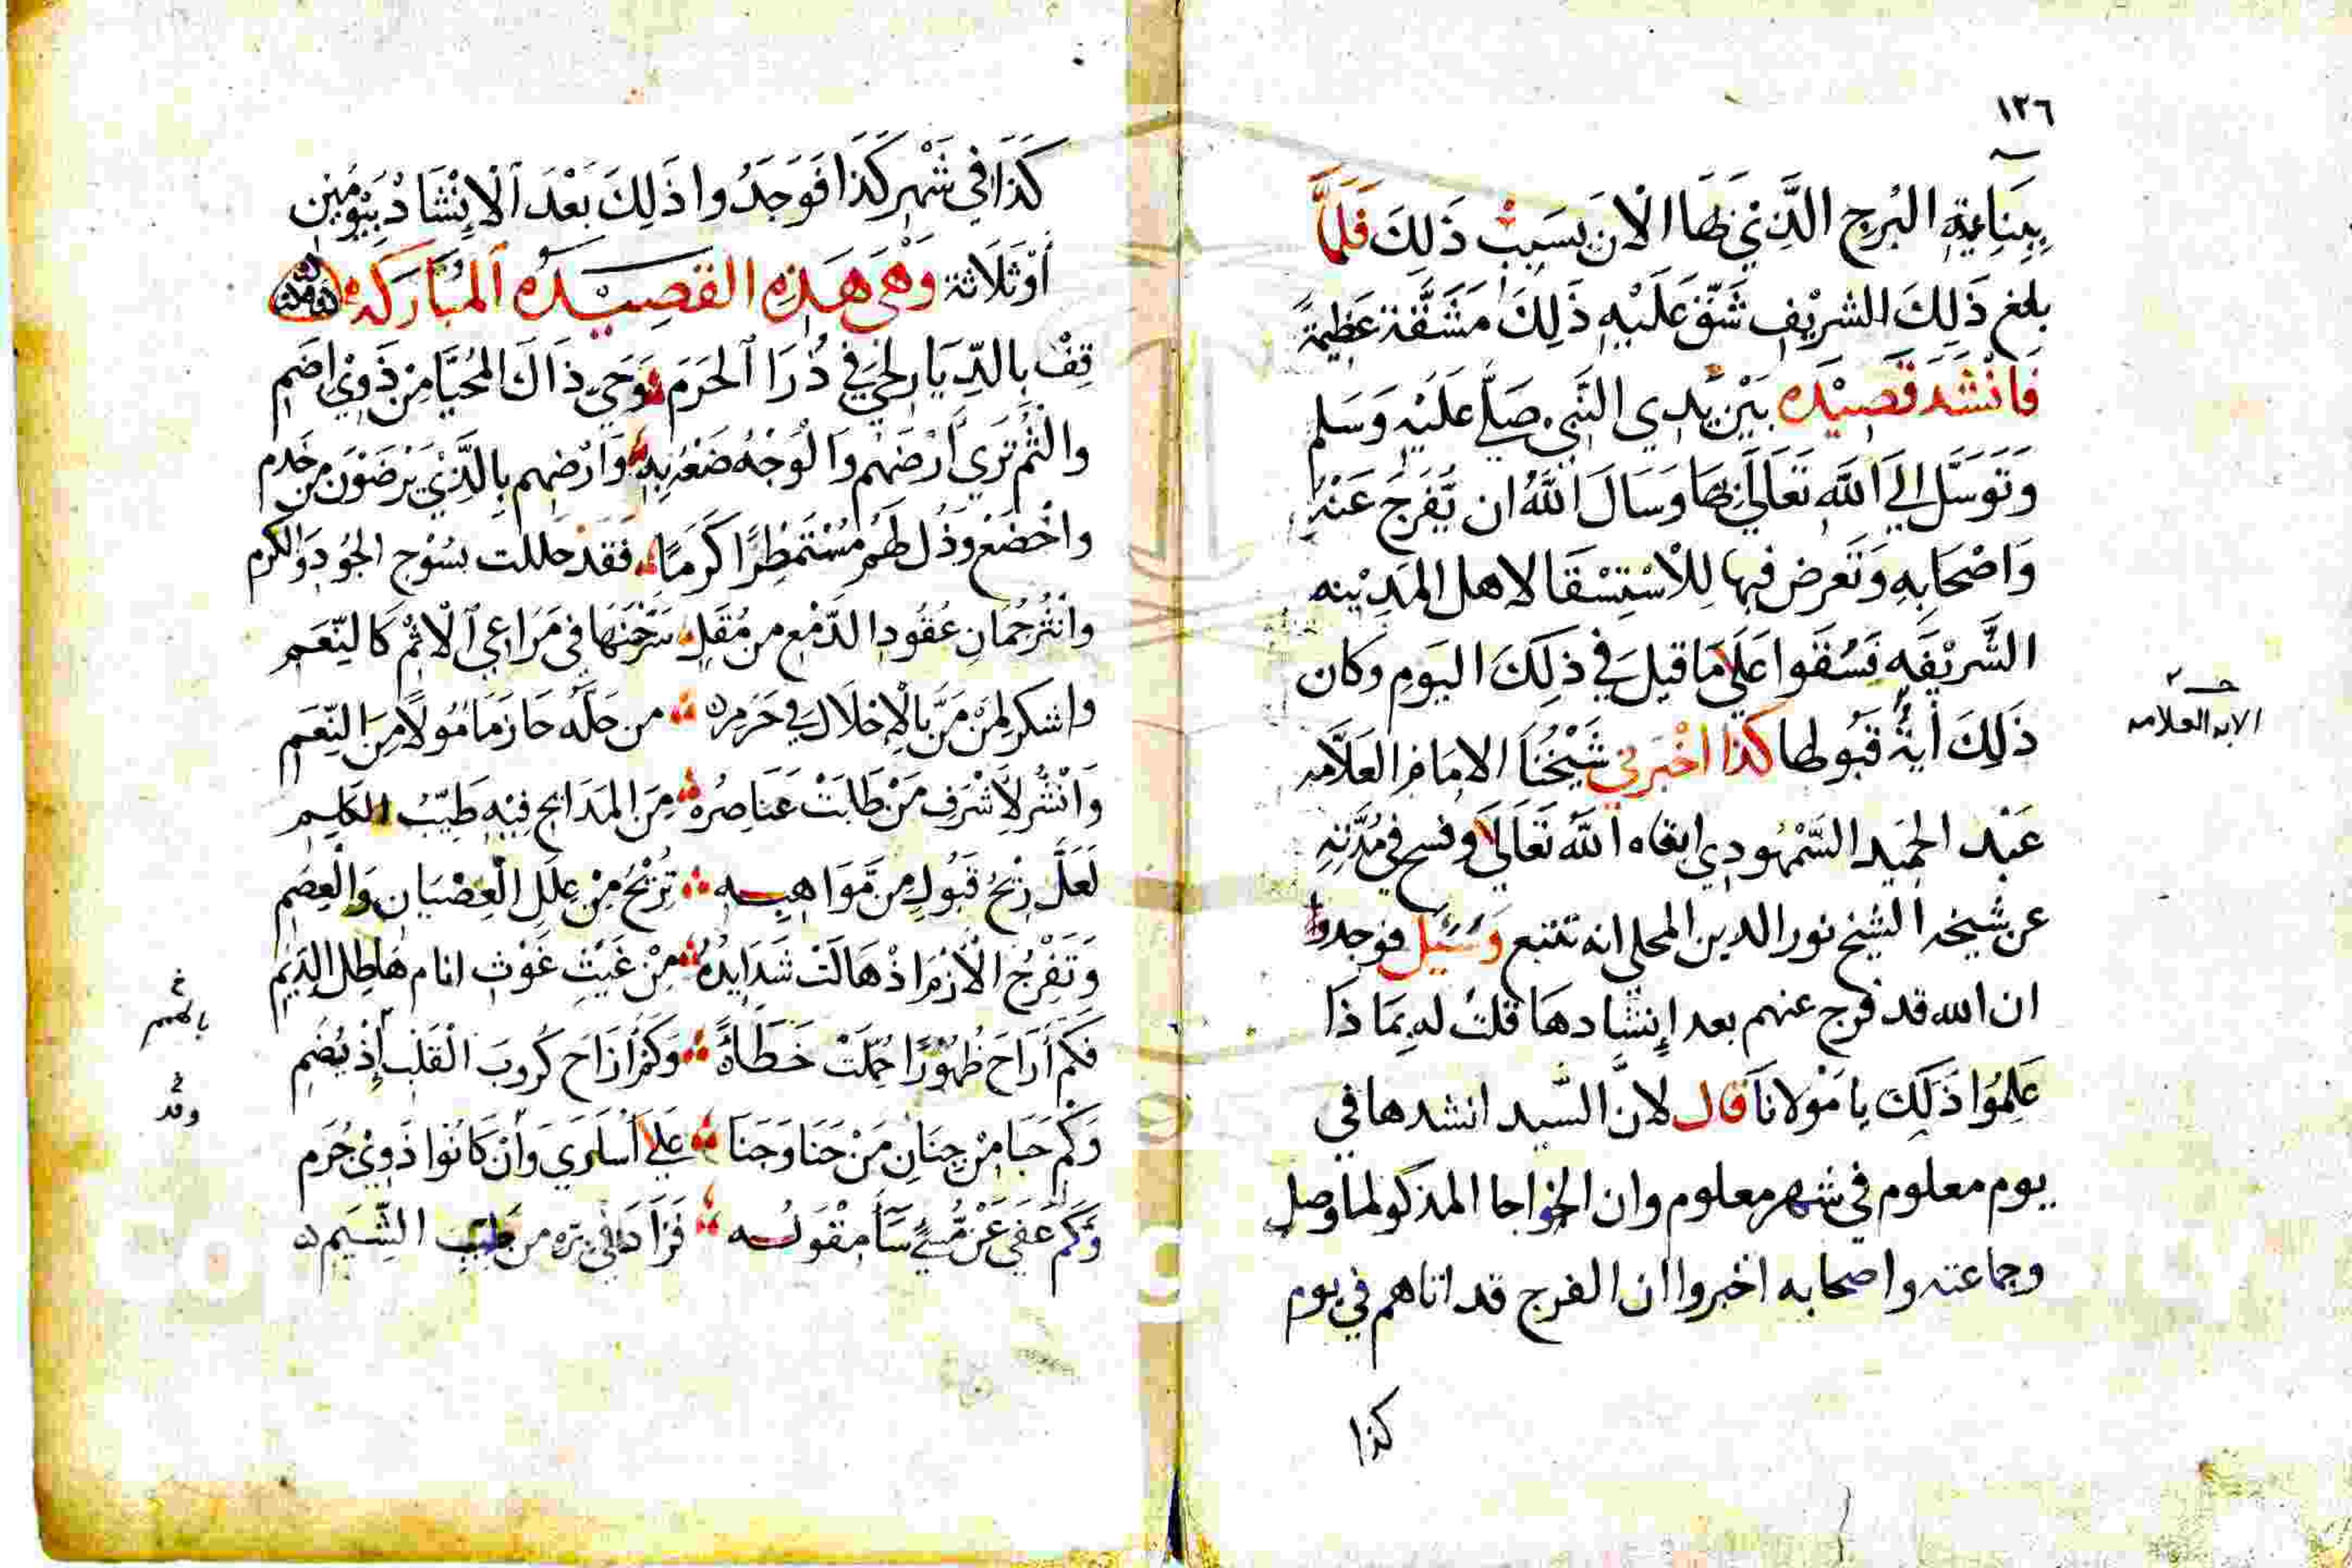 ١٣٦
ببناية البرج الَّذِي لها الآن بسبب ذَلِكَ فَلَمَّا
بلغ ذَلِكَ الشريف شَقّ عَلَيْهِ ذَلِكَ مَشَقَّة عَظِيمَةً
فَانْشَدَ قَصِيْدَه بَيْنَ يَدي النَّبِي صَلَّى عَلَيْهِ وَسَلم
وَتَوَسَّلَ الي اللَّهِ تَعَالَي بها وَسَالَ اللَّهُ ان يُفَرِجَ عَنْهُ
وَاصْحَابِهِ وَتَعرض فيها لِلْاسْتِسْقَا لاهل المَدِيْنه
الشَّرِيْفَهِ فَسُقَوا عَلَى مَا قيلَ في ذلِكَ اليَومِ وكان
ذَلِكَ أيةُ قَبُولها كَذا اخْبَرَني شَيْخُنَا الامَام العَلاَّمه
حـ
الابه العلامه
عَبْد الحمِيد السَّمْهُودي ابقاه اللَّهُ تَعَالَي وفسح في مُدَّتِهِ
عن شيخه الشيخ نور الدين المحلي انه تتبع وَسُئِل فوجدوا
ان الله قد فرج عنهم بعد إِنشادهَا قلتُ له بِمَا ذَا
عَلِمُوا ذَلِكَ يا مَوْلانَا قال لانَّ السَّيد انشدها في
يوم معلوم في شهر معلوم وان الخواجا المذكو لما وصل
وجماعته واصحابه اخبروا ان الفرج قد اتاهم في يوم
كذا
كَذَا في شَهْر كَذَا فَوَجَدُوا ذَلِكَ بَعْدَ الْانْشَادْ بِيَوْمَين
أَوْ ثَلَاثة وَهْيَ هَذِهِ القصِيْدَه المُبَارَكَه
قِفْ بِالدِّيَارِ لحي في ذُرَا الحَرَمِ وَحَي ذَاكَ المُحَيَّا مِن ذَوِي اضَمِ
والْثُم ثرَي أَرْضهم وَالْوَجْهُ ضَعْهُ بِه وَارْضِهم بِالَّذِي يَرْضَوْنَ مِن خَدم
واخْضَعْ وَذُل لهُم مُسْتَمْطِرًا كَرَمًا فَقَدْ حللت بسُوْح الجُودِ وَالكرم
وانْثُر جُمَانِ عُقُودِ الدَّمْعِ من مُقَلٍ سَرَّحْنَهَا في مَرَاعِي الْاثْمِ كَالنّعَم
واشكر لمَنْ مَنَّ بالْإحلَال في حَرَمِه من حَلَّه حَازَ مَامُولًا مِنَ النِّعَم
وَانْشُر لأَشْرَفِ مَنْ طَابَتْ عَنَاصِرُه مِنَ المَدَايح فِيْهِ طَيّبُ الكَلِم
لَعَلَّ رِيْحُ قَبُولٍ مِن مَّوَاهِبِه تُزِيْحُ مِنْ عِلَلِ الْعِصْيَانِ وَالْعِصَمِ
وَتَفْرُجُ الْأَزْمَ اذْ هَالَتْ شَدَايِدُهُ مِنْ غَيْثِ غَوْثِ انام هَاطِل الدِيَم
فَكَم أَرَاحَ ظُهُوْرًا حُمِّلَتْ خَطَأً وَكَم أَزَاحَ كُروبَ الْقَلْبِ إِذْ يُضَمِ
وَكَم حَبَا مِنْ جِنَانٍ مَنْ حَنَا وَجَنَا عَلَى أَسَارَي وَأنْ كَانُوا ذَوِيْ جُرَم
وَكَم عَفَى عَنْ مُّسِيٍ سَأَ مِقْوَلُه فَزَادَ في برّه من طَيّبِ الشِّيَمِ
خ
بالهمم
خ
وقد